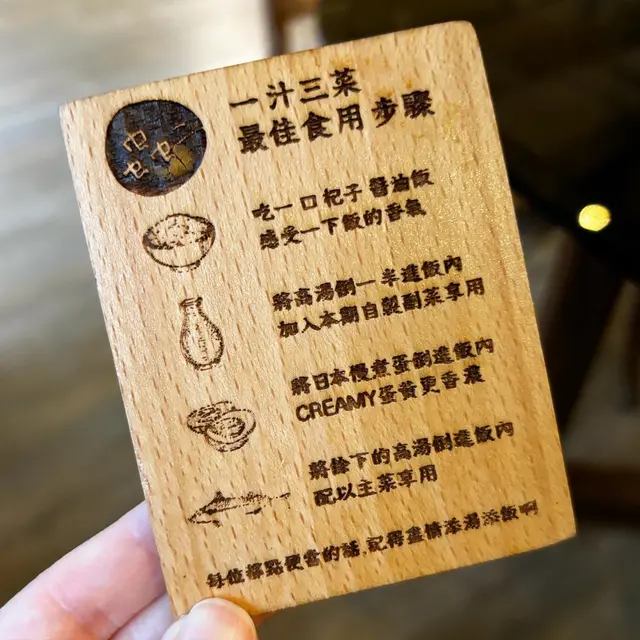 一汁三菜
最佳食用步驟
吃一口杞子醬油飯
感受一下飯的香氣
將高湯倒一半進飯內
加入本店自製副菜享用
將日本慢煮蛋倒進飯內
CREAMY蛋黃更香濃
將餘下的高湯倒進飯內
配以主菜享用
每位都點便當的話,記得盡情添湯添飯啊